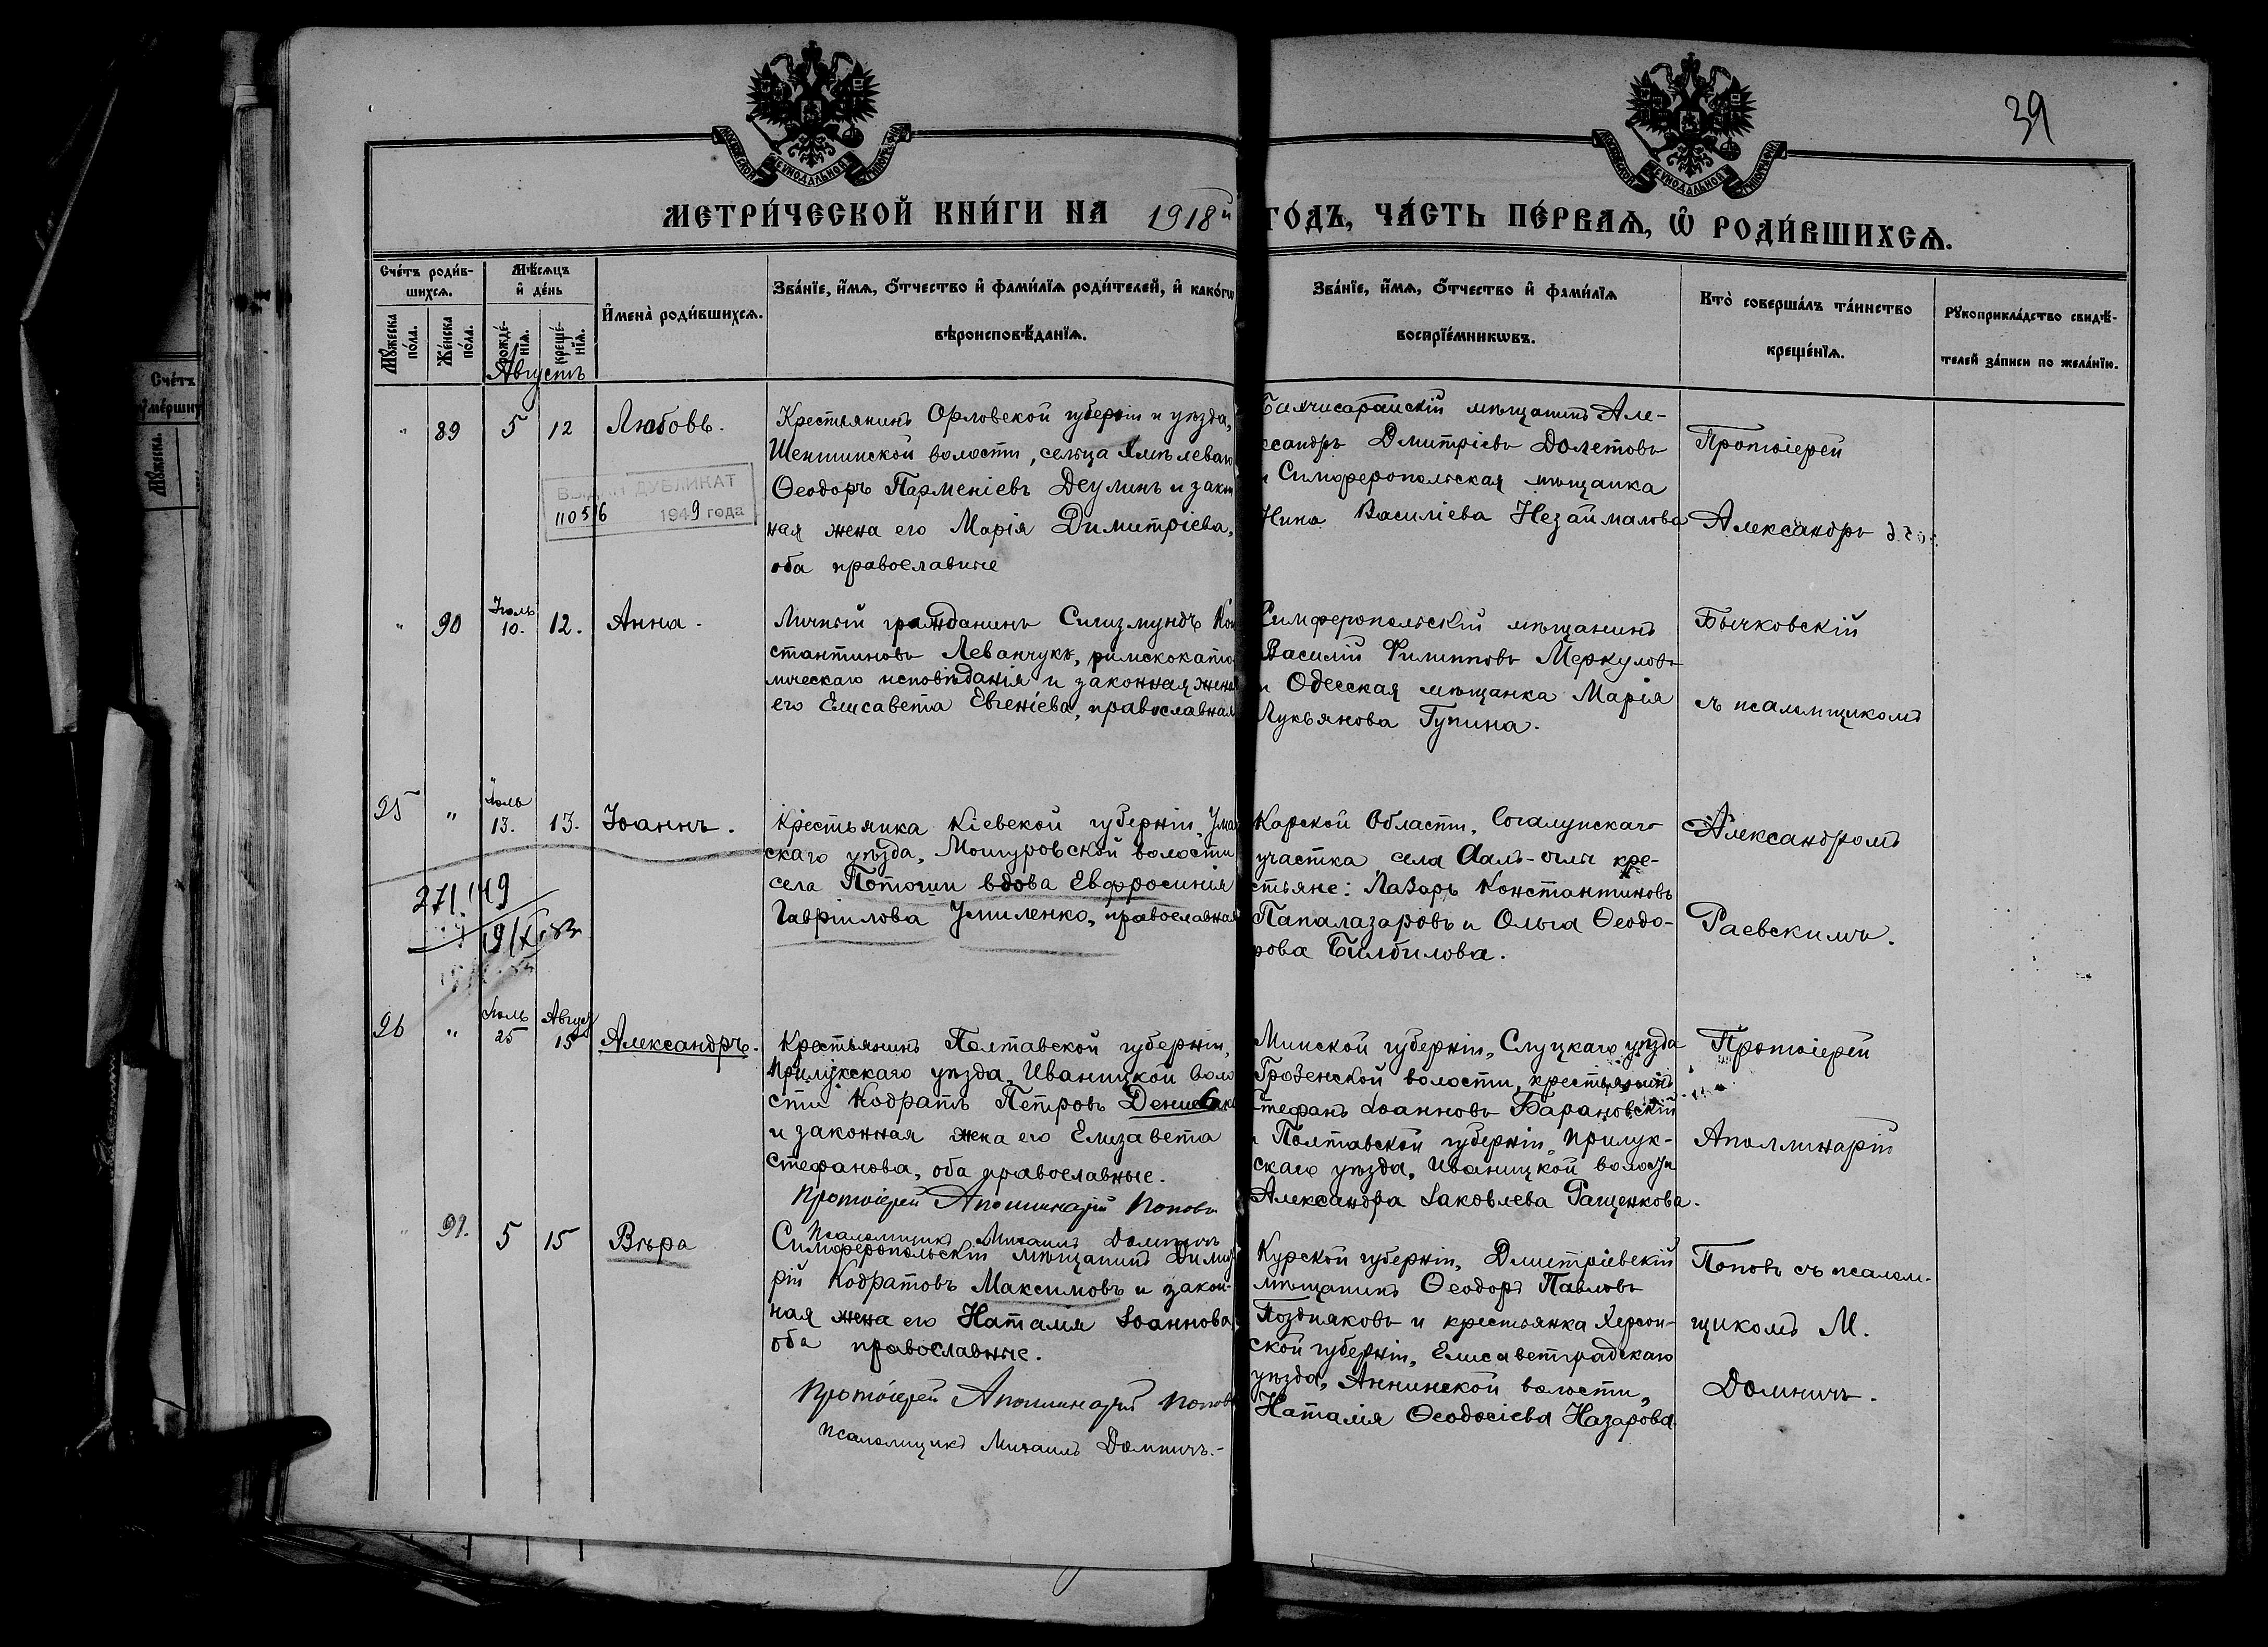 39
МЕТРИ́ЧЕСКОЙ КНИ́ГИ НА 1918й
ГО́ДЪ, ЧА́СТЬ ПЕ́РВАѦ, Ѡ҆ РОДИ́ВШИХСѦ.
Сче́тъ роди́в-
шихсѧ.
Мꙋ́жеска по́ла.
Же́нска по́ла.
Мѣ́сѧцъ
и҆ де́нь
рожде́-нїѧ.
креще́-нїѧ.
И҆мена̀ роди́вшихсѧ.
Зва́нїе, и҆́мѧ, ѻ҆́тчество и҆ фами́лїѧ роди́телей, и҆ како́гѡ
вѣроисповѣ́данїѧ.
Зва́нїе, и҆́мѧ, ѻ҆́тчество и҆ фами́лїѧ
воспрїе́мникѡвъ.
Кто̀ соверша́лъ та́инство
креще́нїѧ.
Рꙋкоприкла́дство свидѣ́-
телей за́писи по жела́нїю.
Августъ
" 89 5 12 Любовь.
Крестьянинъ Орловской губерніи и уѣзда,
Шеншинской волости, сельца
Ѳеодоръ Парменіевъ Деулинъ и закон
ная жена его Марія Димитріева,
оба православные
Бахчисарайскій мѣщанинъ Але-
ксандръ Дмитріевъ Долетовъ
и Симферопольская мѣщанка
Нина Василіева Незаймалова
Протоіерей
Александръ
ВЫДАН ДУБЛИКАТ
110516 1949 года
" 90 Іюль 10. 12. Анна.
Личный гражданинъ Сигизмундъ Кон
стантиновъ Леванчукъ, римскокато
лическаго исповѣданія и законная жена
его Елисавета Евгеніева, православная
Симферопольскій мѣщанинъ
Василій Филипповъ Меркуловъ
и Одесская мѣщанка Марія
Лукьянова Гупина.
Бычковскій
съ псаломщикомъ
95 " Іюль 13. 13. Іоаннъ.
Крестьянка Кіевской губерніи, Уман
скаго уѣзда, Мошуровской волости
села Потоши вдова Евфросинія
Гавріилова Умиленко, православная
Карской Области, Согалупскаго
участка села кре-
стьяне: Лазарь Константиновъ
Папалазаровъ и Ольга Ѳеодо-
рова Билбилова.
Александромъ
Раевскимъ.
271.149
96 " Іюль 25 Август 15 Александръ.
Крестьянинъ Полтавской губерніи,
Прилукскаго уѣзда, Иваницкой воло
сти Кодратъ Петровъ Денисенко
и законная жена его Елизавета
Стефанова, оба православные.
Протоіерей Аполлинарій Поповъ
Псаломщикъ Михаилъ Домничъ
Минской губерніи, Слуцкаго уѣзда
Грозенской волости, крестьянинъ
Стефанъ Іоанновъ Барановскій
и Полтавской губерніи, Прилук-
скаго уѣзда, Иваницкой волости
Александра Іаковлева Ращенкова.
Протоіерей
Аполлинарій
" 91. 5 15 Вѣра
Симферопольскій мѣщанинъ Димит
рій Кодратовъ Максимовъ и закон-
ная жена его Наталія Іоаннова
оба православные.
Протоіерей Аполлинарій Поповъ
Псаломщикъ Михаилъ Домничъ.-
Курской губерніи, Дмитріевскій
мѣщанинъ Ѳеодоръ Павловъ
Поздняковъ и крестьянка Херсон-
ской губерніи, Елисаветградскаго
уѣзда, Аннинской волости,
Наталія Ѳеодосіева Назарова
Поповъ съ псалом-
щикомъ М.
Домничъ.
Сче́тъ